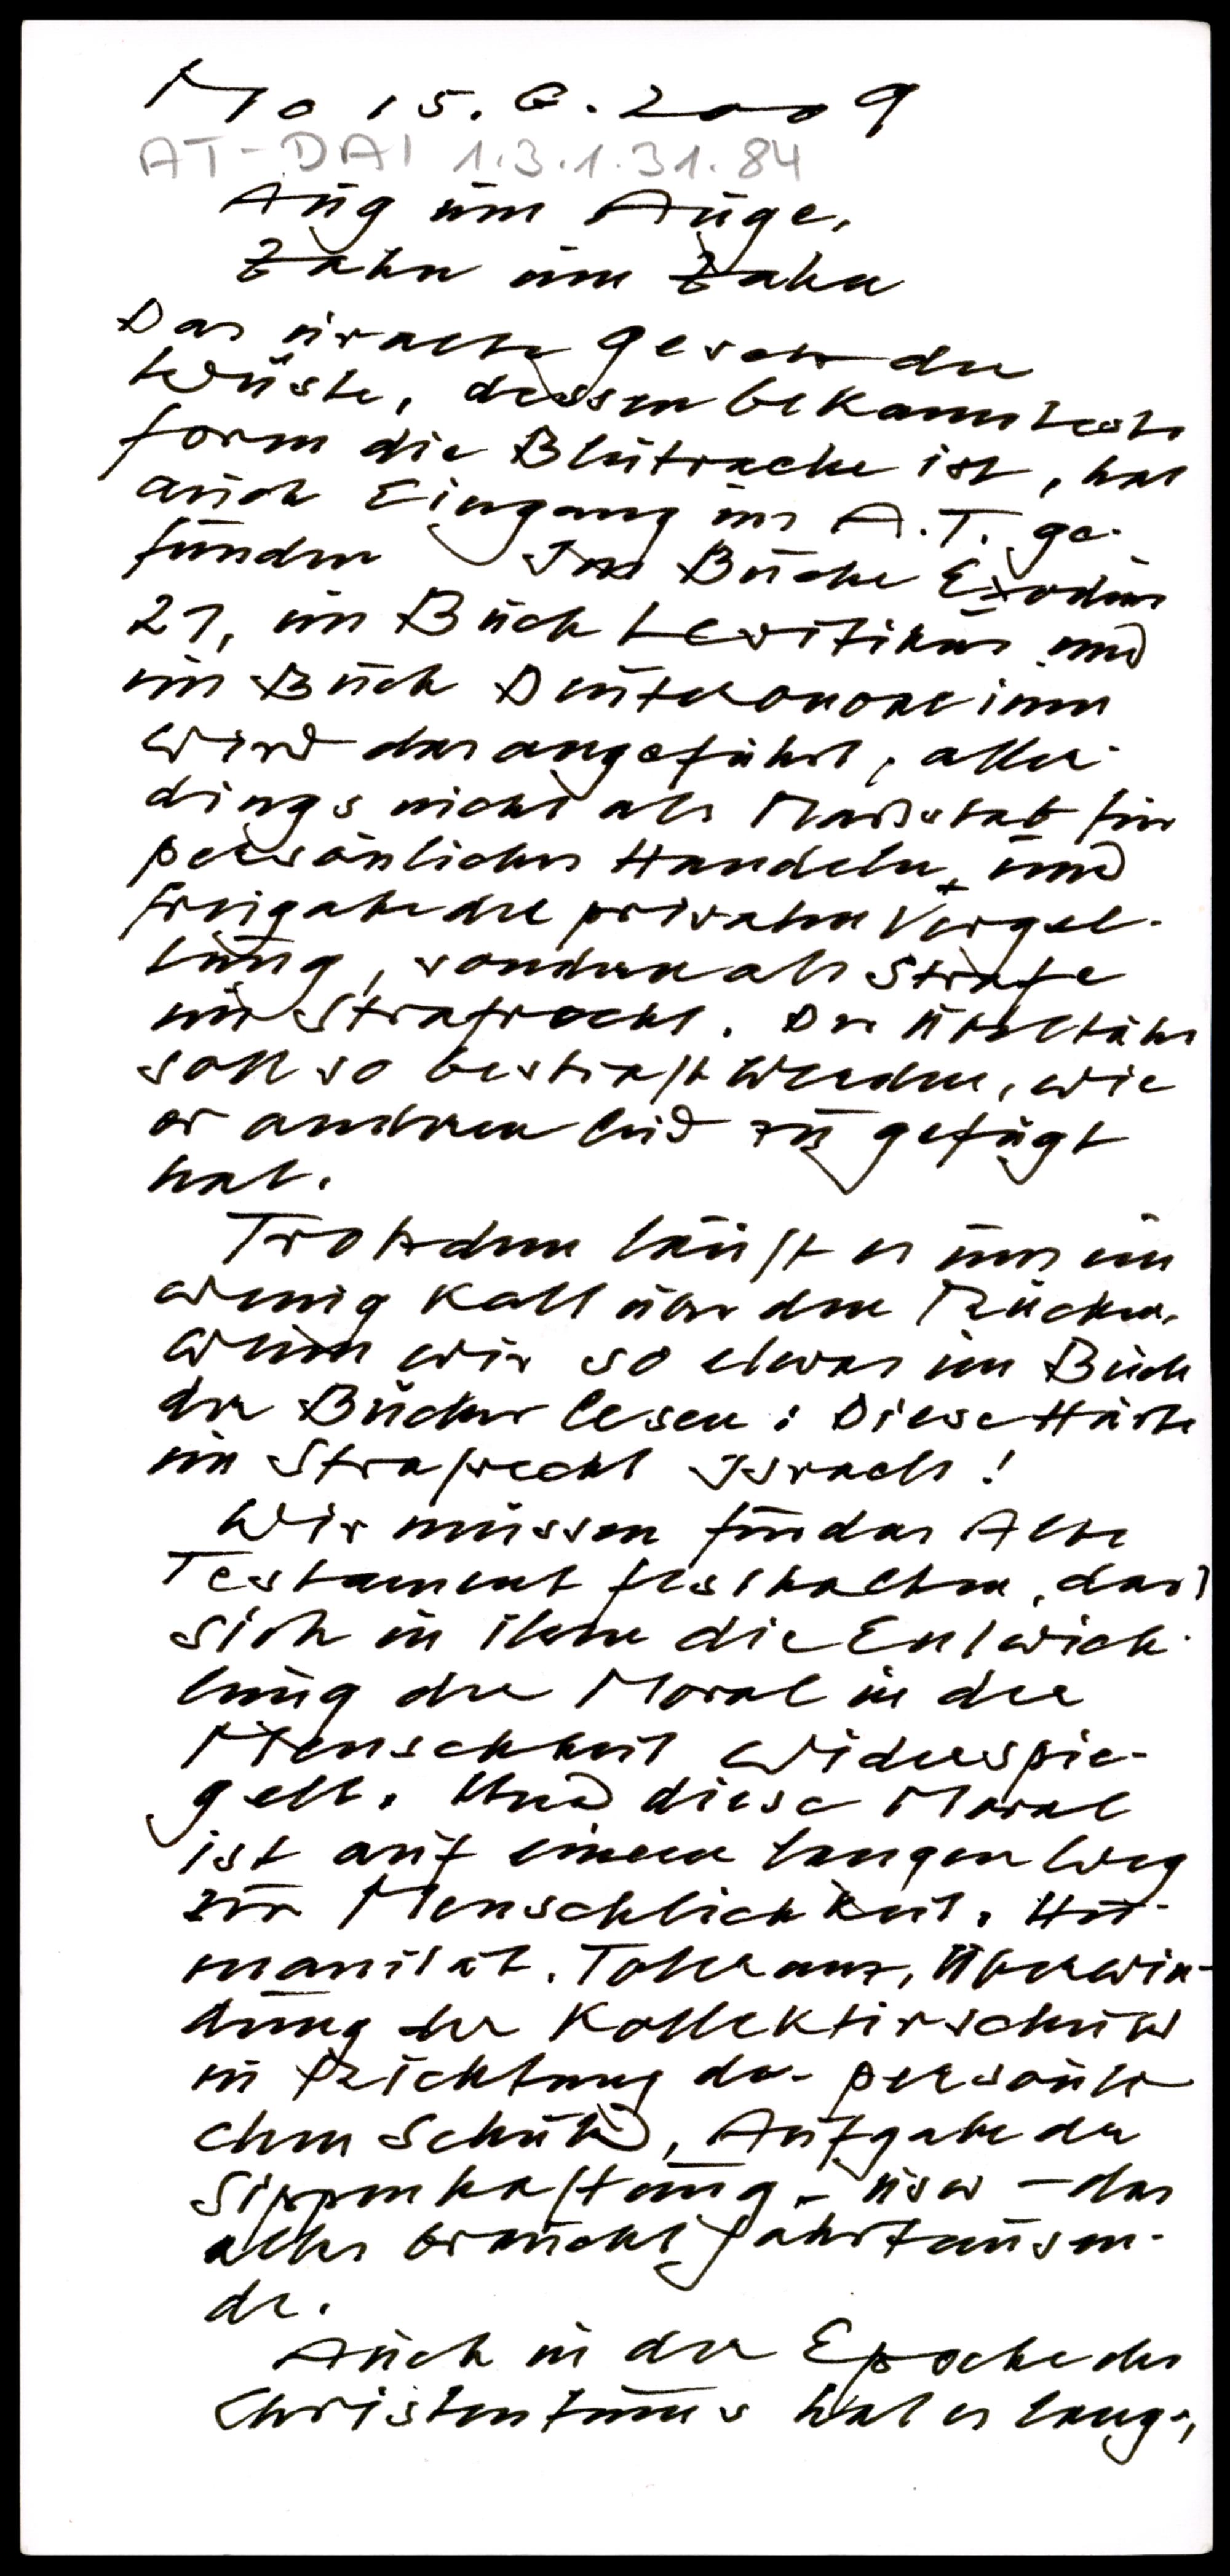 Mo 15.6.2009
AT-DAI 1.3.1.31.84
Aug um Auge,
Zahn um Zahn
Das uralte Gesetz der
Wüste, dessen bekannteste
Form die Blutrache ist, hat
auch Eingang ins A.T. ge-
funden Im Buche Exodus
21, im Buch Levitikus und
im Buch Deuteronomium
wird das angeführt, aller-
dings nicht als Maßstab für
persönliches Handeln und
Freigabe der privaten Vergel-
tung, sondern als Strafe
im Strafrecht. Der Übeltäter
soll so bestraft werden, wie
er anderen Leid zugefügt
hat.
Trotzdem läuft es uns ein
wenig kalt über den Rücken,
wenn wir so etwas im Buch
der Bücher lesen: Diese Härte
im Strafrecht Israels!
Wir müssen für das Alte
Testament festhalten, daß
sich in ihm die Entwick-
lung der Moral in der
Menschheit widerspie-
gelt. Und diese Moral
ist auf einem langen Weg
zur Menschlichkeit. Hu-
manität. Toleranz, Überwin-
dung der Kollektivschuld
in Richtung der persönli-
chen Schuld, Aufgabe der
Sippenhaftung - usw - das
alles braucht Jahrtausen-
de.
Auch in der Epoche des
Christentums hat es lange,